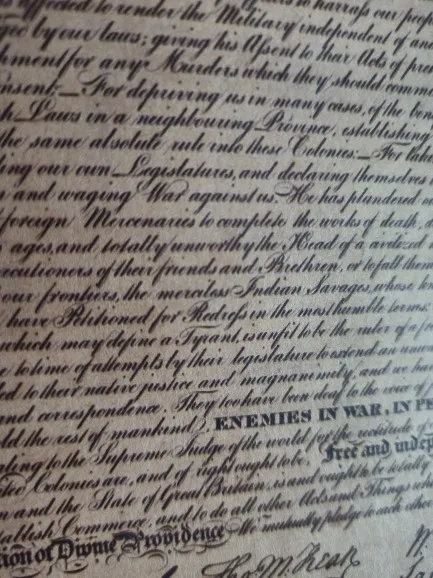 affected to render the Military independent of and
by our laws; giving his Assent to their Acts of
for any Murders which they should
For depriving us in many cases, of the
Laws in a neighbouring Province, establishing
the same absolute rule into these Colonies:—For
our own Legislatures, and declaring themselves
and waging War against us. He has plundered
foreign Mercenaries to complete the works of death,
ages, and totally unworthy the Head of a
of their friends and Brethren, or to fall
our frontiers, the merciless Indian Savages, whose
have Petitioned for Redress in the most humble terms
which may define a Tyrant, is unfit to be the ruler of a
time of attempts by their legislature to extend an
to their native justice and magnanimity, and we
and correspondence. They too have been deaf to the voice of
the rest of mankind), ENEMIES IN WAR, IN
to the Supreme Judge of the world for the rectitude of
Colonies are, and of right ought to be, Free and
and the State of Great Britain, is and ought to be totally
Commerce, and to do all other Acts and Things
of Divine Providence We mutually pledge to each other
Tho M:Kean